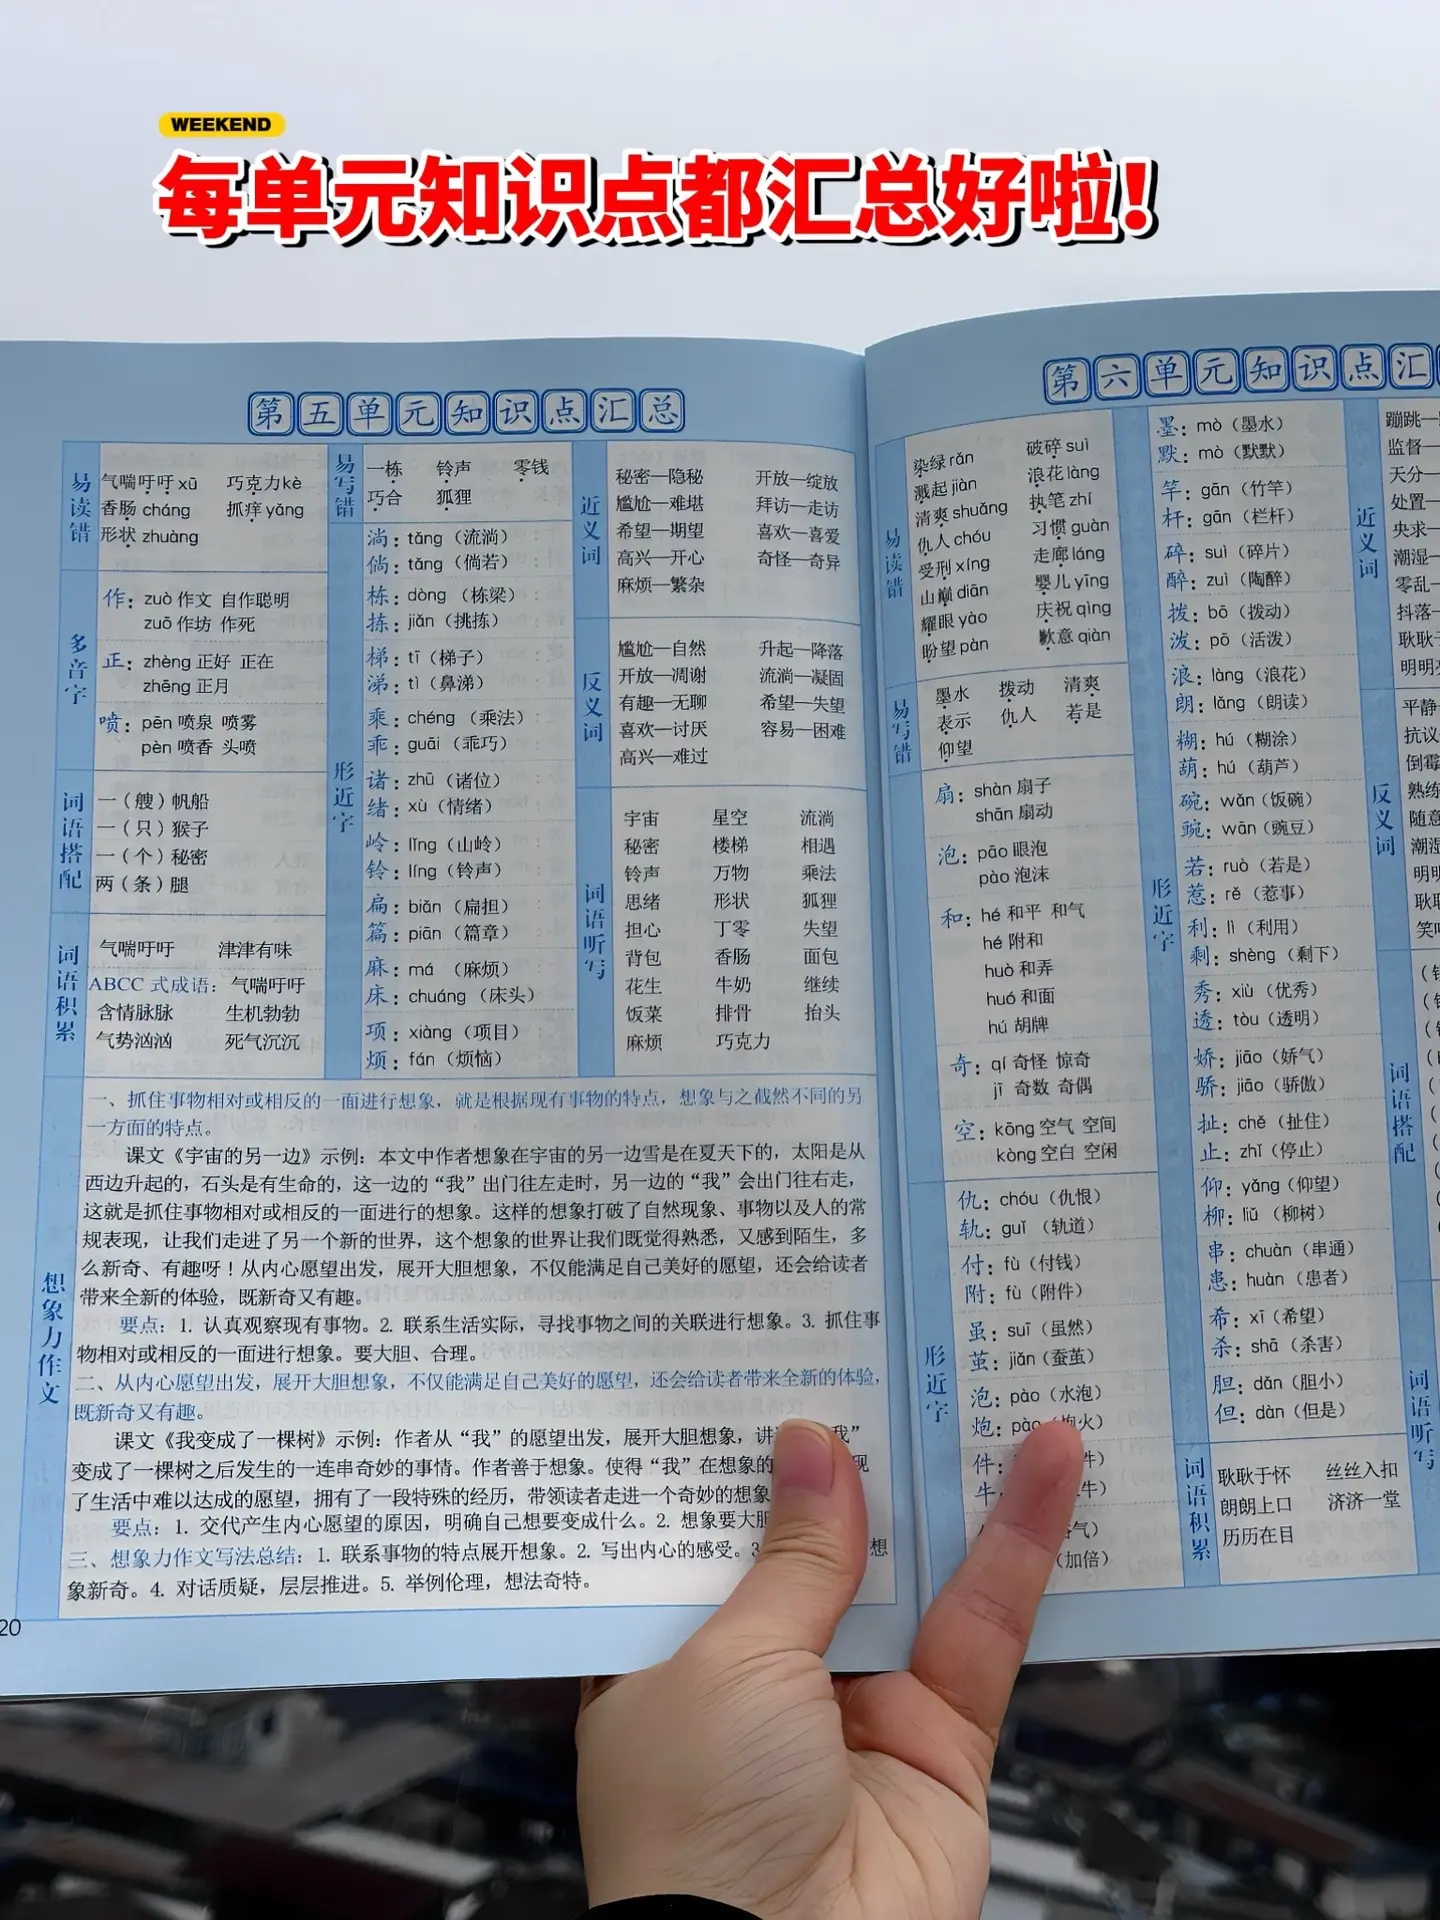 WEEKEND
每单元知识点都汇总好啦!
第五单元知识点汇总
易读错
气喘吁吁 xū 巧克力 kè
香肠 cháng 抓痒 yǎng
形状 zhuàng
多音字
作: zuò 作文 自作聪明
zuō 作坊 作死
正: zhèng 正好 正在
zhēng 正月
喷: pēn 喷泉 喷雾
pèn 喷香 头喷
词语搭配
一(艘)帆船
一(只)猴子
一(个)秘密
两(条)腿
词语积累
气喘吁吁 津津有味
ABCC 式成语: 气喘吁吁
含情脉脉 生机勃勃
气势汹汹 死气沉沉
易写错
一栋 铃声 零钱
巧合 狐狸
形近字
淌: tǎng (流淌)
倘: tǎng (倘若)
栋: dòng (栋梁)
拣: jiǎn (挑拣)
梯: tī (梯子)
涕: tì (鼻涕)
乘: chéng (乘法)
乖: guāi (乖巧)
诸: zhū (诸位)
绪: xù (情绪)
岭: lǐng (山岭)
铃: líng (铃声)
扁: biǎn (扁担)
篇: piān (篇章)
麻: má (麻烦)
床: chuáng (床头)
项: xiàng (项目)
烦: fán (烦恼)
近义词
秘密—隐秘 开放—绽放
尴尬—难堪 拜访—走访
希望—期望 喜欢—喜爱
高兴—开心 奇怪—奇异
麻烦—繁杂
反义词
尴尬—自然 升起—降落
开放—凋谢 流淌—凝固
有趣—无聊 希望—失望
喜欢—讨厌 容易—困难
高兴—难过
词语听写
宇宙 星空 流淌
秘密 楼梯 相遇
铃声 万物 乘法
思绪 形状 狐狸
担心 丁零 失望
背包 香肠 面包
花生 牛奶 继续
饭菜 排骨 抬头
麻烦 巧克力
想象力作文
一、抓住事物相对或相反的一面进行想象，就是根据现有事物的特点，想象与之截然不同的另
一方面的特点。
课文《宇宙的另一边》示例：本文中作者想象在宇宙的另一边雪是在夏天下的，太阳是从
西边升起的，石头是有生命的，这一边的“我”出门往左走时，另一边的“我”会出门往右走，
这就是抓住事物相对或相反的一面进行的想象。这样的想象打破了自然现象、事物以及人的常
规表现，让我们走进了另一个新的世界，这个想象的世界让我们既觉得熟悉，又感到陌生，多
么新奇、有趣呀！从内心愿望出发，展开大胆想象，不仅能满足自己美好的愿望，还会给读者
带来全新的体验，既新奇又有趣。
要点：1. 认真观察现有事物。2. 联系生活实际，寻找事物之间的关联进行想象。3. 抓住事
物相对或相反的一面进行想象。要大胆、合理。
二、从内心愿望出发，展开大胆想象，不仅能满足自己美好的愿望，还会给读者带来全新的体验，
既新奇又有趣。
课文《我变成了一棵树》示例：作者从“我”的愿望出发，展开大胆想象，讲 我”
变成了一棵树之后发生的一连串奇妙的事情。作者善于想象。使得“我”在想象的 现
了生活中难以达成的愿望，拥有了一段特殊的经历，带领读者走进一个奇妙的想象
要点：1. 交代产生内心愿望的原因，明确自己想要变成什么。2. 想象要大胆
三、想象力作文写法总结：1. 联系事物的特点展开想象。2. 写出内心的感受。3 想
象新奇。4. 对话质疑，层层推进。5. 举例伦理，想法奇特。
20
第六单元知识点汇
易读错
染绿 rǎn 破碎 suì
溅起 jiàn 浪花 làng
清爽 shuǎng 执笔 zhí
仇人 chóu 习惯 guàn
受刑 xíng 走廊 láng
山巅 diān 婴儿 yīng
耀眼 yào 庆祝 qìng
盼望 pàn 歉意 qiàn
易写错
墨水 拨动 清爽
表示 仇人 若是
仰望
扇: shàn 扇子
shān 扇动
泡: pāo 眼泡
pào 泡沫
和: hé 和平 和气
hé 附和
huò 和弄
huó 和面
hú 胡牌
奇: qí 奇怪 惊奇
jī 奇数 奇偶
空: kōng 空气 空间
kòng 空白 空闲
形近字
仇: chóu (仇恨)
轨: guǐ (轨道)
付: fù (付钱)
附: fù (附件)
虽: suī (虽然)
茧: jiǎn (蚕茧)
泡: pào (水泡)
炮: pào 炮火)
件: 件)
牛:
气)
(加倍)
形近字
墨: mò (墨水)
默: mò (默默)
竿: gān (竹竿)
杆: gān (栏杆)
碎: suì (碎片)
醉: zuì (陶醉)
拨: bō (拨动)
泼: pō (活泼)
浪: làng (浪花)
朗: lǎng (朗读)
糊: hú (糊涂)
葫: hú (葫芦)
碗: wǎn (饭碗)
豌: wān (豌豆)
若: ruò (若是)
惹: rě (惹事)
利: lì (利用)
剩: shèng (剩下)
秀: xiù (优秀)
透: tòu (透明)
娇: jiāo (娇气)
骄: jiāo (骄傲)
扯: chě (扯住)
止: zhǐ (停止)
仰: yǎng (仰望)
柳: liǔ (柳树)
串: chuàn (串通)
患: huàn (患者)
希: xī (希望)
杀: shā (杀害)
胆: dǎn (胆小)
但: dàn (但是)
词语积累
耿耿于怀 丝丝入扣
朗朗上口 济济一堂
历历在目
近义词
蹦跳—
监督—
天分—
处置—
央求—
潮湿—
零乱—
抖落—
耿耿
明明
反义词
平静
抗议
倒霉
熟练
随意
潮湿
明明
耿耿
笑
词语搭配
词语听写